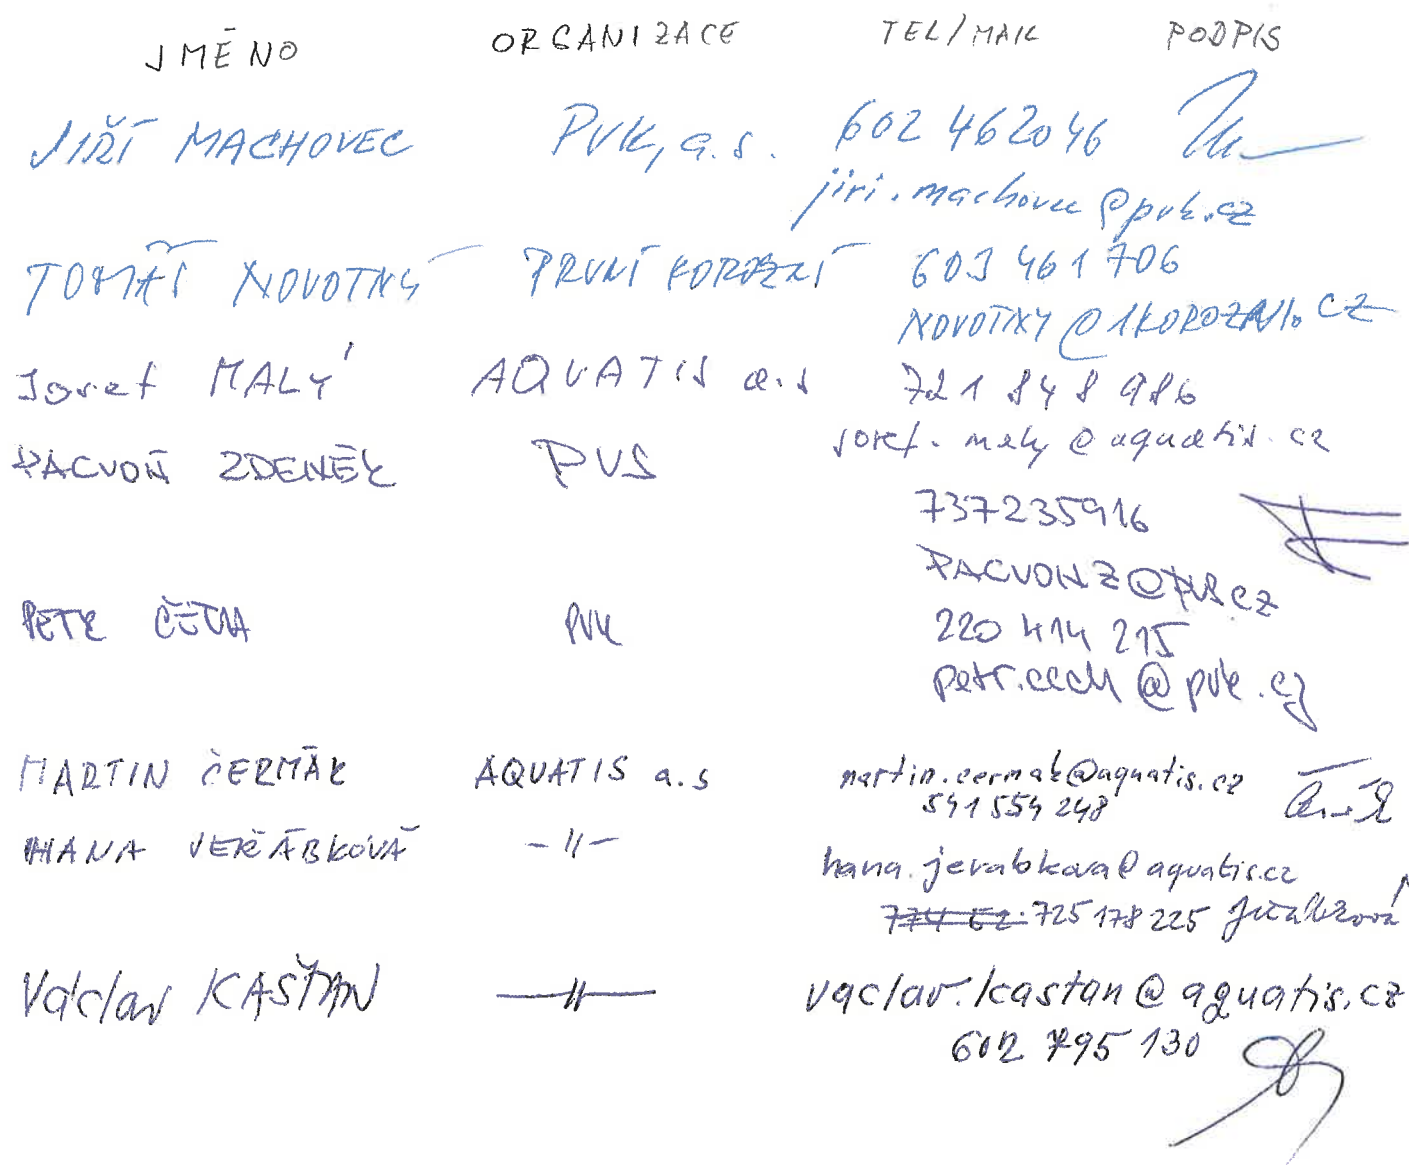 JMÉNO ORGANIZACE TEL/MAIL PODPIS
JIŘÍ MACHOVEC PVK, a.s. 602 462046
jiri.machovec@pvk.cz
TOMÁŠ NOVOTNÝ PRVNÍ KOROZNÍ 603 461 706
NOVOTNY@1KOROZNI.CZ
Josef MALÝ AQUATIS a.s 721 848 986
josef.maly@aquatis.cz
PACVOŇ ZDENĚK PVS
737235916
PACVONZ@PVS.CZ
PETR PVK 220 414 215
petr.cech@pvk.cz
MARTIN ČERMÁK AQUATIS a.s martin.cermak@aquatis.cz
541 554 248
HANA JEŘÁBKOVÁ -//-
hana.jerabkova@aquatis.cz
725 178 225 Jeřábková
Václav KAŠTAN -//- vaclav.kastan@aquatis.cz
602 795 130